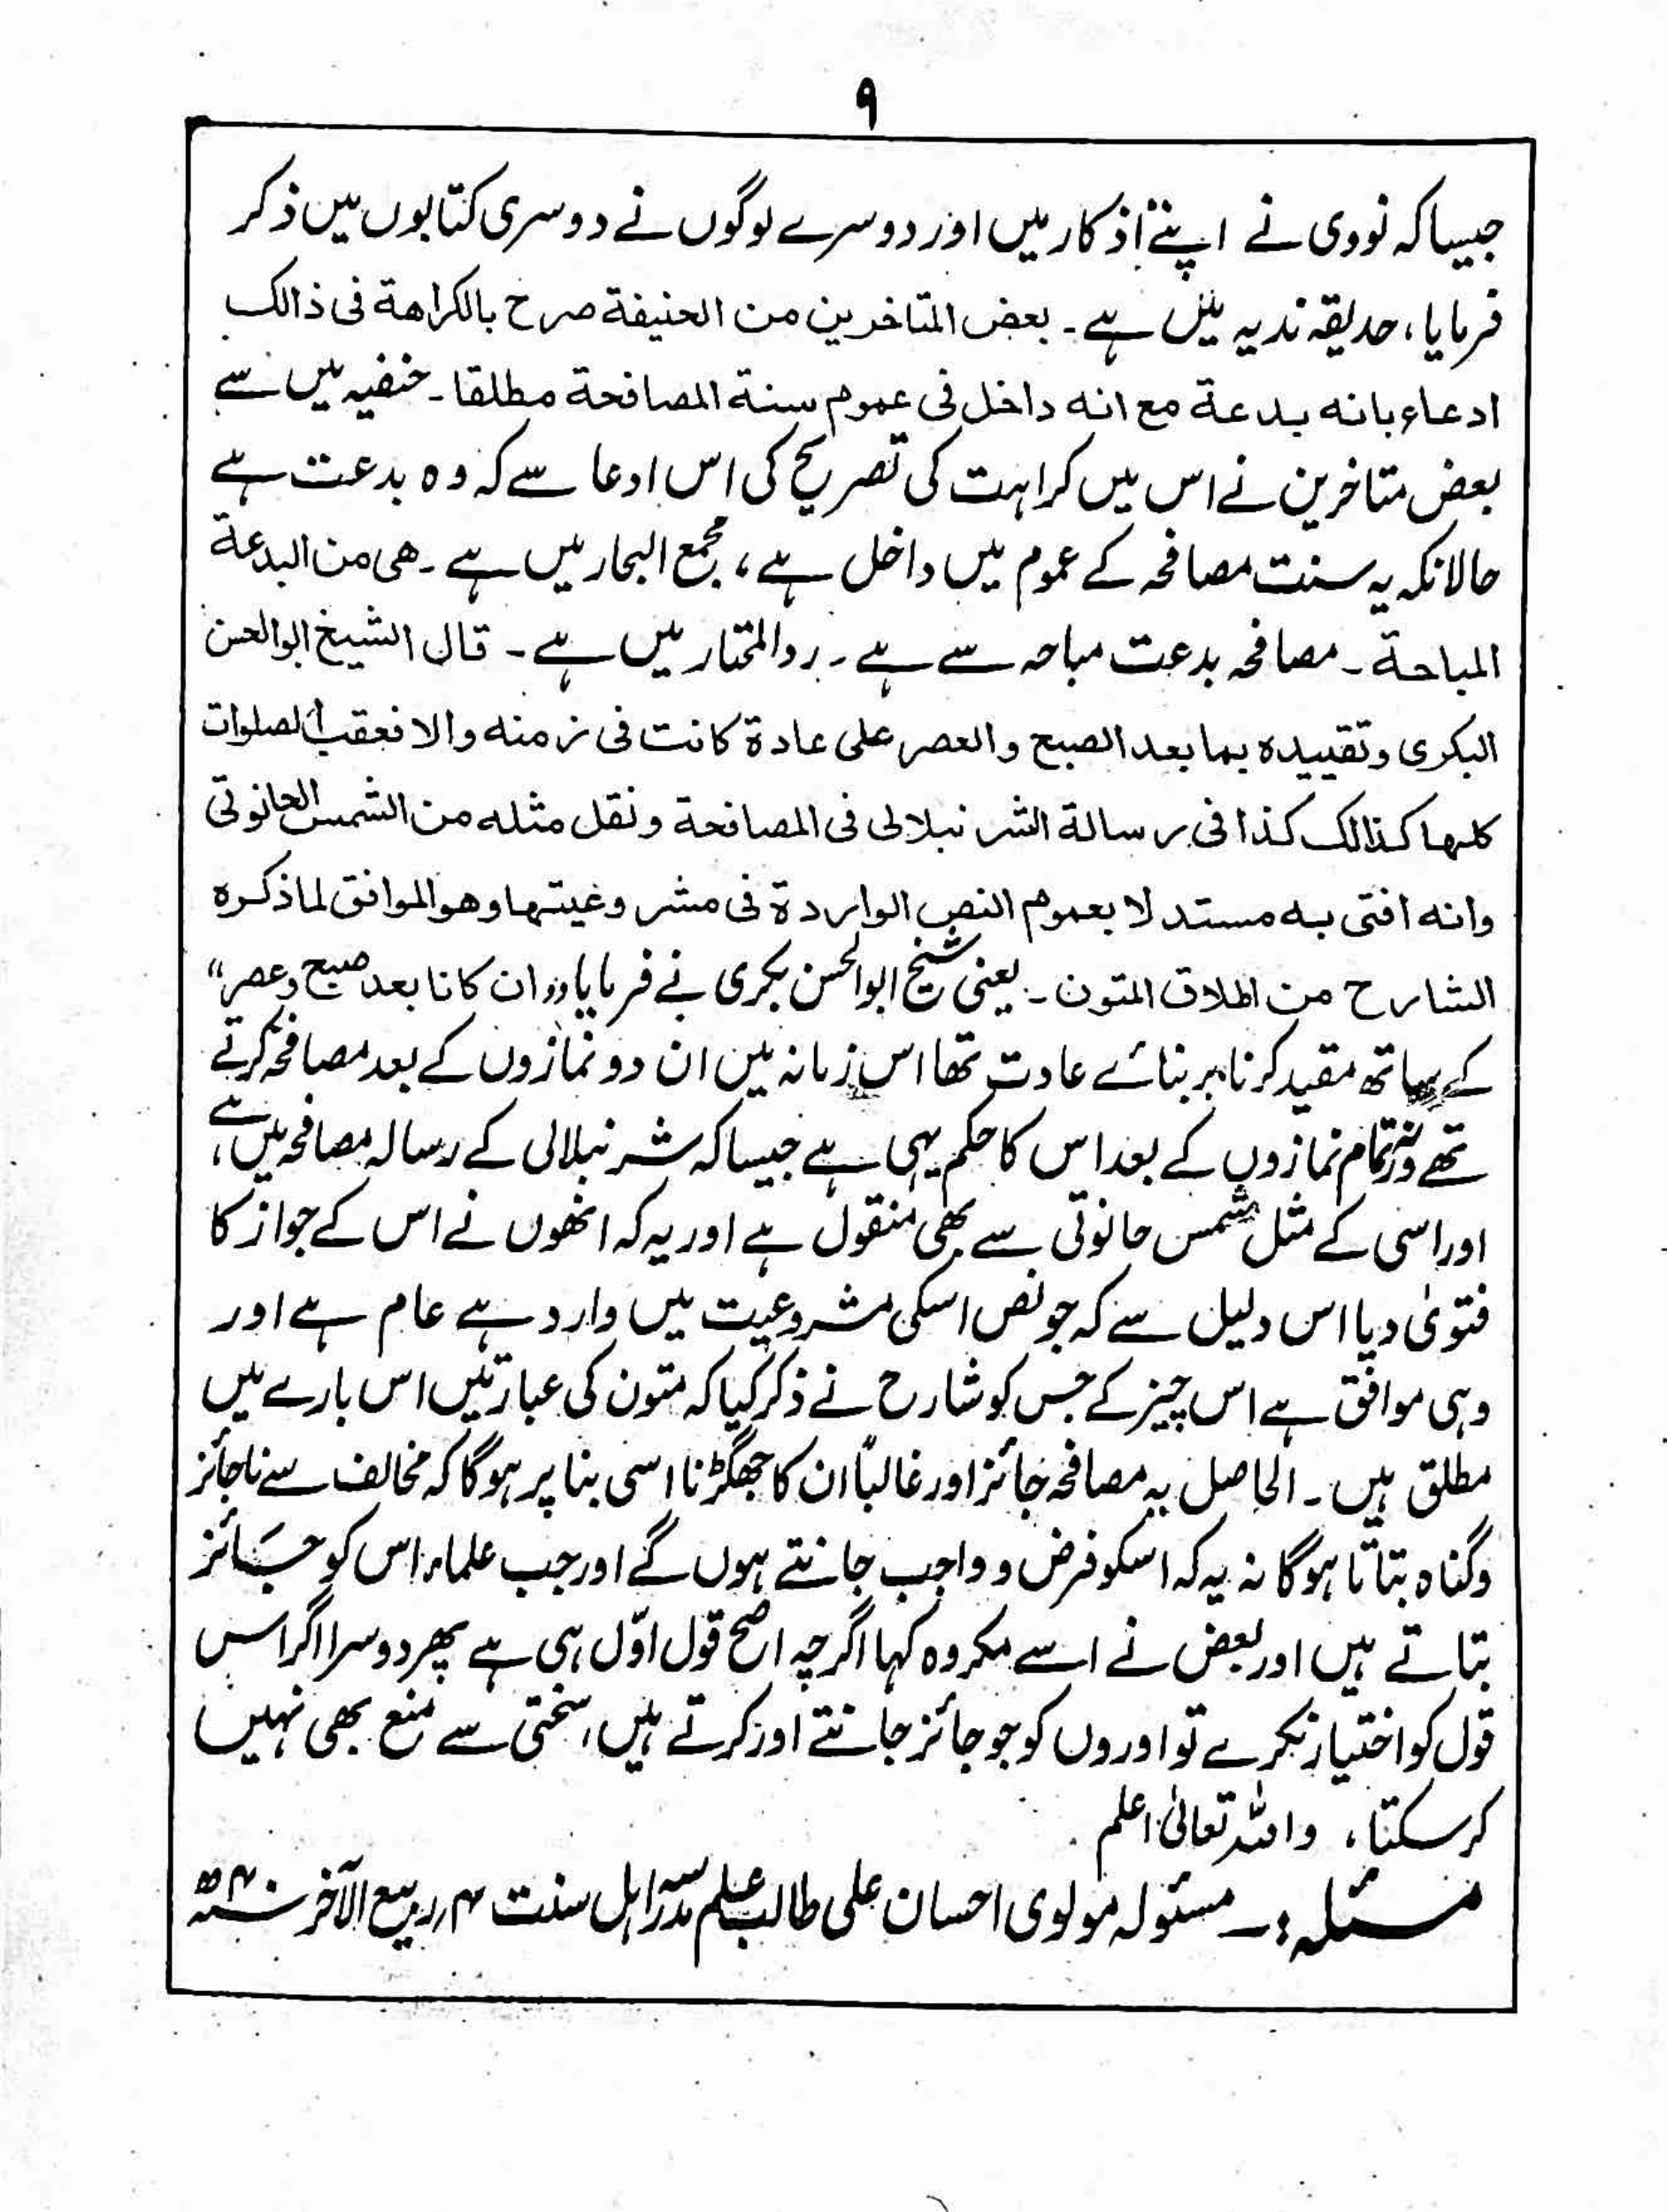 ۹
جیسا کہ نووی نے اپنے اذکار میں اور دوسرے لوگوں نے دوسری کتابوں میں ذکر
فرمایا، حدیقہ ندیہ میں ہے۔ بعض المتاخرین من الحنیفة صرح بالکراهة فی ذالک
ادعاء بانه بدعة مع انه داخل فی عموم سنة المصافحة مطلقا۔ حنفیہ میں سے
بعض متاخرین نے اس میں کراہت کی تصریح کی اس ادعا سے کہ وہ بدعت ہے
حالانکہ یہ سنت مصافحہ کے عموم میں داخل ہے، مجمع البحار میں ہے۔ هی من البدعة
المباحة۔ مصافحہ بدعت مباحہ سے ہے۔ ردالمحتار میں ہے۔ قال الشیخ ابوالحسن
البکری وتقییده بما بعد الصبح والعصر علی عادة کانت فی زمنه والا فعقب الصلوات
کلها کذالک کذا فی رسالة الشرنبلالی فی المصافحة ونقل مثله من الشمس الحانوتی
وانه افتی به مستدلا بعموم النص الواردة فی مشروعیتها وهو الموافق لما ذکره
الشارح من اطلاق المتون۔ یعنی شیخ ابوالحسن بکری نے فرمایا ”ان کانا بعد صبح وعصر“
کے ساتھ مقید کرنا بر بنائے عادت تھا اس زمانہ میں ان دو نمازوں کے بعد مصافحہ کرتے
تھے ورنہ تمام نمازوں کے بعد اس کا حکم یہی ہے جیسا کہ شرنبلالی کے رسالہ مصافحہ میں ہے،
اور اسی کے مثل شمس حانوتی سے بھی منقول ہے اور یہ کہ انھوں نے اس کے جواز کا
فتویٰ دیا اس دلیل سے کہ جو نص اسکی مشروعیت میں وارد ہے عام ہے اور
وہی موافق ہے اس چیز کے جس کو شارح نے ذکر کیا کہ متون کی عبارتیں اس بارے میں
مطلق ہیں۔ الحاصل یہ مصافحہ جائز اور غالباً ان کا جھگڑنا اسی بنا پر ہوگا کہ مخالف سے ناجائز
وگناہ بتاتا ہوگا نہ یہ کہ اسکو فرض و واجب جانتے ہوں گے اور جب علماء اس کو جائز
بتاتے ہیں اور بعض نے اسے مکروہ کہا اگرچہ اصح قول اوّل ہی ہے پھر دوسرا اگر اس
قول کو اختیار نکرے تو اوروں کو جو جائز جانتے اور کرتے ہیں، سختی سے منع بھی نہیں
کر سکتا، واللہ تعالیٰ اعلم
مسئلہ:۔ مسئولہ مولوی احسان علی طالب علم مدرسہ اہل سنت ۴؍ ربیع الآخر سنہ ۴۰ھ